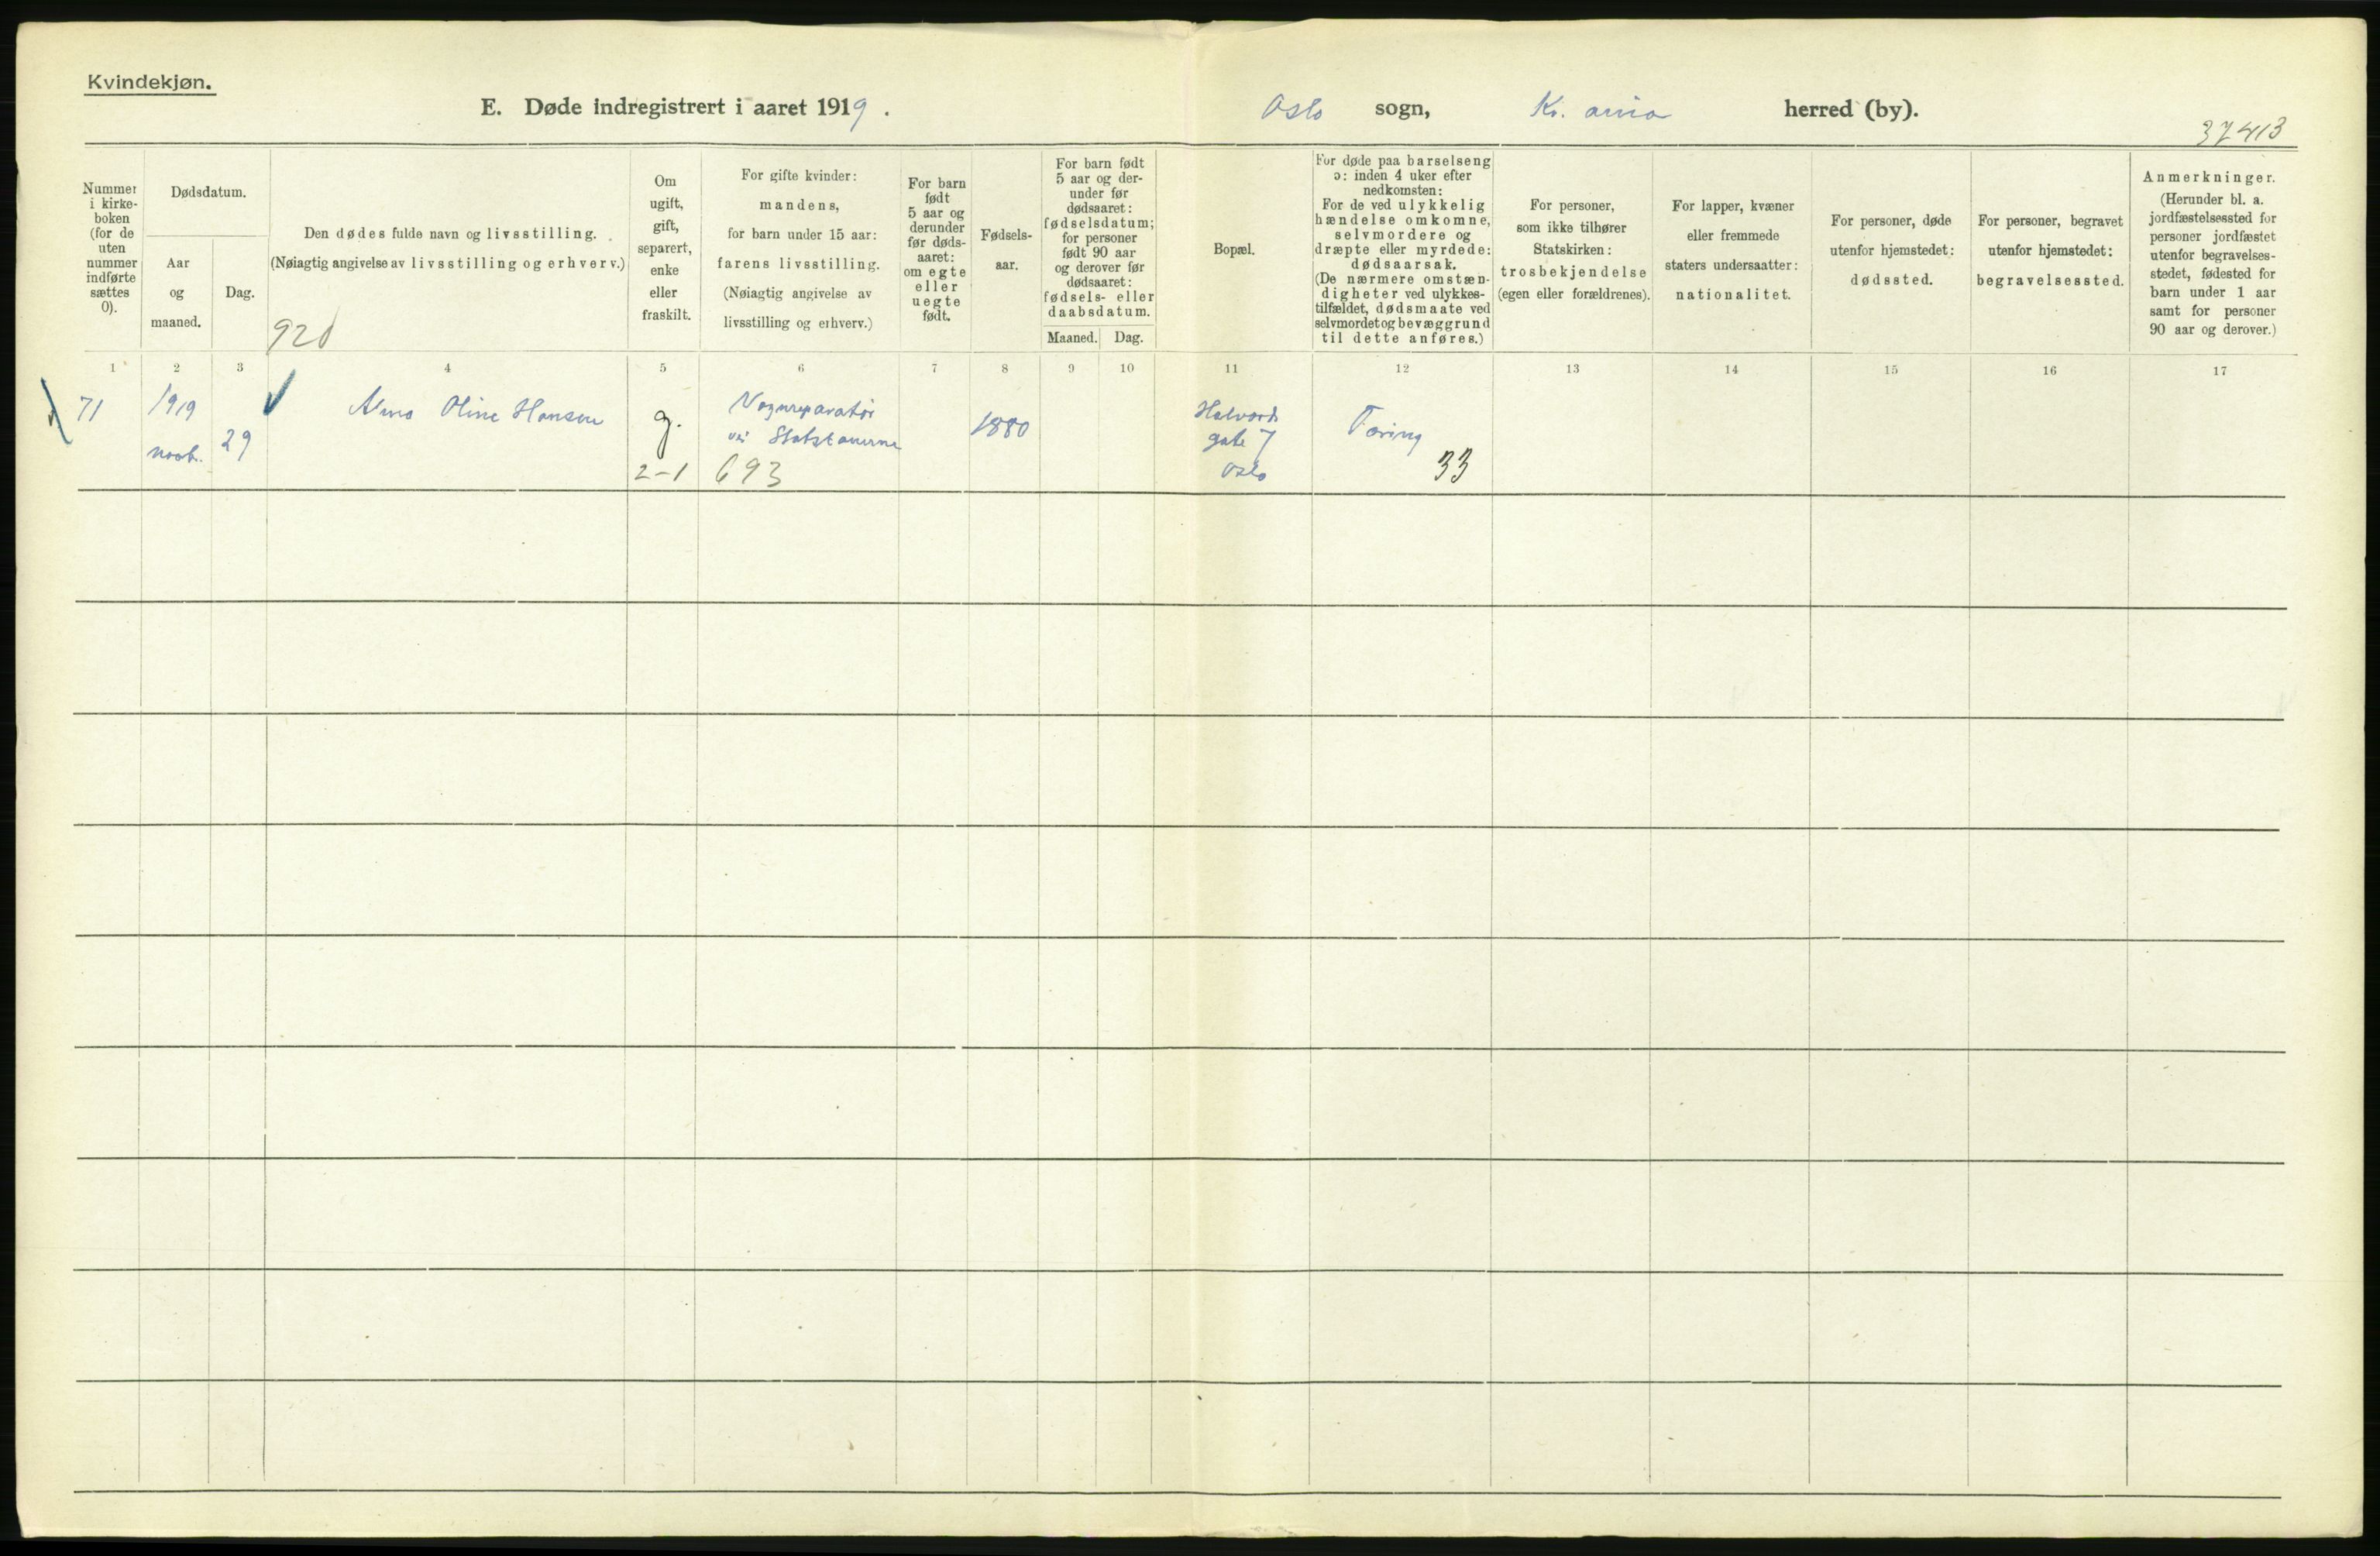 Kvindekjøn.
E. Døde indregistrert i aaret 1919.
Oslo sogn, Kr. ania herred (by).
37413
Nummer
i kirke-
boken
(for de
uten
nummer
indførte
sættes
0).
Dødsdatum.
Aar
og
maaned.
Dag.
Den dødes fulde navn og livsstilling.
(Nøiagtig angivelse av livsstilling og erhverv.)
920
Om
ugift,
gift,
separert,
enke
eller
fraskilt.
For gifte kvinder:
mandens,
for barn under 15 aar:
farens livsstilling.
(Nøiagtig angivelse av
livsstilling og erhverv.)
For barn
født
5 aar og
derunder
før døds-
aaret:
om egte
eller
uegte
født.
Fødsels-
aar.
For barn født
5 aar og der-
under før
dødsaaret:
fødselsdatum;
for personer
født 90 aar
og derover før
dødsaaret:
fødsels- eller
daabsdatum.
Maaned. Dag.
Bopæl.
For døde paa barselseng
ɔ: inden 4 uker efter
nedkomsten:
For de ved ulykkelig
hændelse omkomne,
selvmordere og
dræpte eller myrdede:
dødsaarsak.
(De nærmere omstæn-
digheter ved ulykkes-
tilfældet, dødsmaate ved
selvmordet og bevæggrund
til dette anføres.)
For personer,
som ikke tilhører
Statskirken:
trosbekjendelse
(egen eller forældrenes).
For lapper, kvæner
eller fremmede
staters undersaatter:
nationalitet.
For personer, døde
utenfor hjemstedet:
dødssted.
For personer, begravet
utenfor hjemstedet:
begravelsessted.
Anmerkninger.
(Herunder bl. a.
jordfæstelsessted for
personer jordfæstet
utenfor begravelses-
stedet, fødested for
barn under 1 aar
samt for personer
90 aar og derover.)
1 2 3 4 5 6 7 8 9 10 11 12 13 14 15 16 17
71
1919
novb.
29
Alma Oline Hansen
g.
2-1
Vognreparatør
ved Statsbanerne
693
1880
Halvards
gate 7
Oslo
Tæring
33